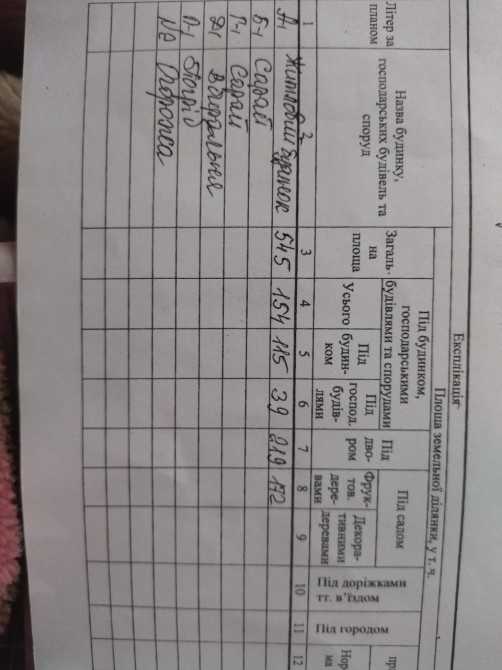 Експлікація
Площа земельної ділянки, у т. ч.
Літер за планом
Назва будинку, господарських будівель та споруд
Загаль- на площа
Під будинком, господарськими будівлями та спорудами
Усього
Під будин- ком
Під господ. будів- лями
Під дво- ром
Під садом
Фрук- тов. дере- вами
Декора- тивними деревами
Під доріжками тт. в'їздом
Під городом
1 2 3 4 5 6 7 8 9 10 11 12
А-1 Житловий будинок 545 154 115 39 219 172
Б-1 Сарай
Г-1 Сарай
Д-1 Вбиральня
П-1 Погріб
№ Огорожа